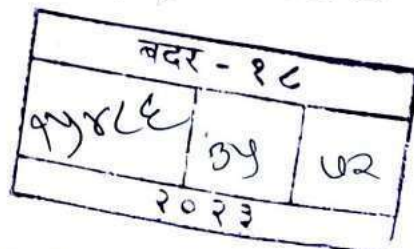 बदर - १८
१५४८६ ३५ ७२
२०२३